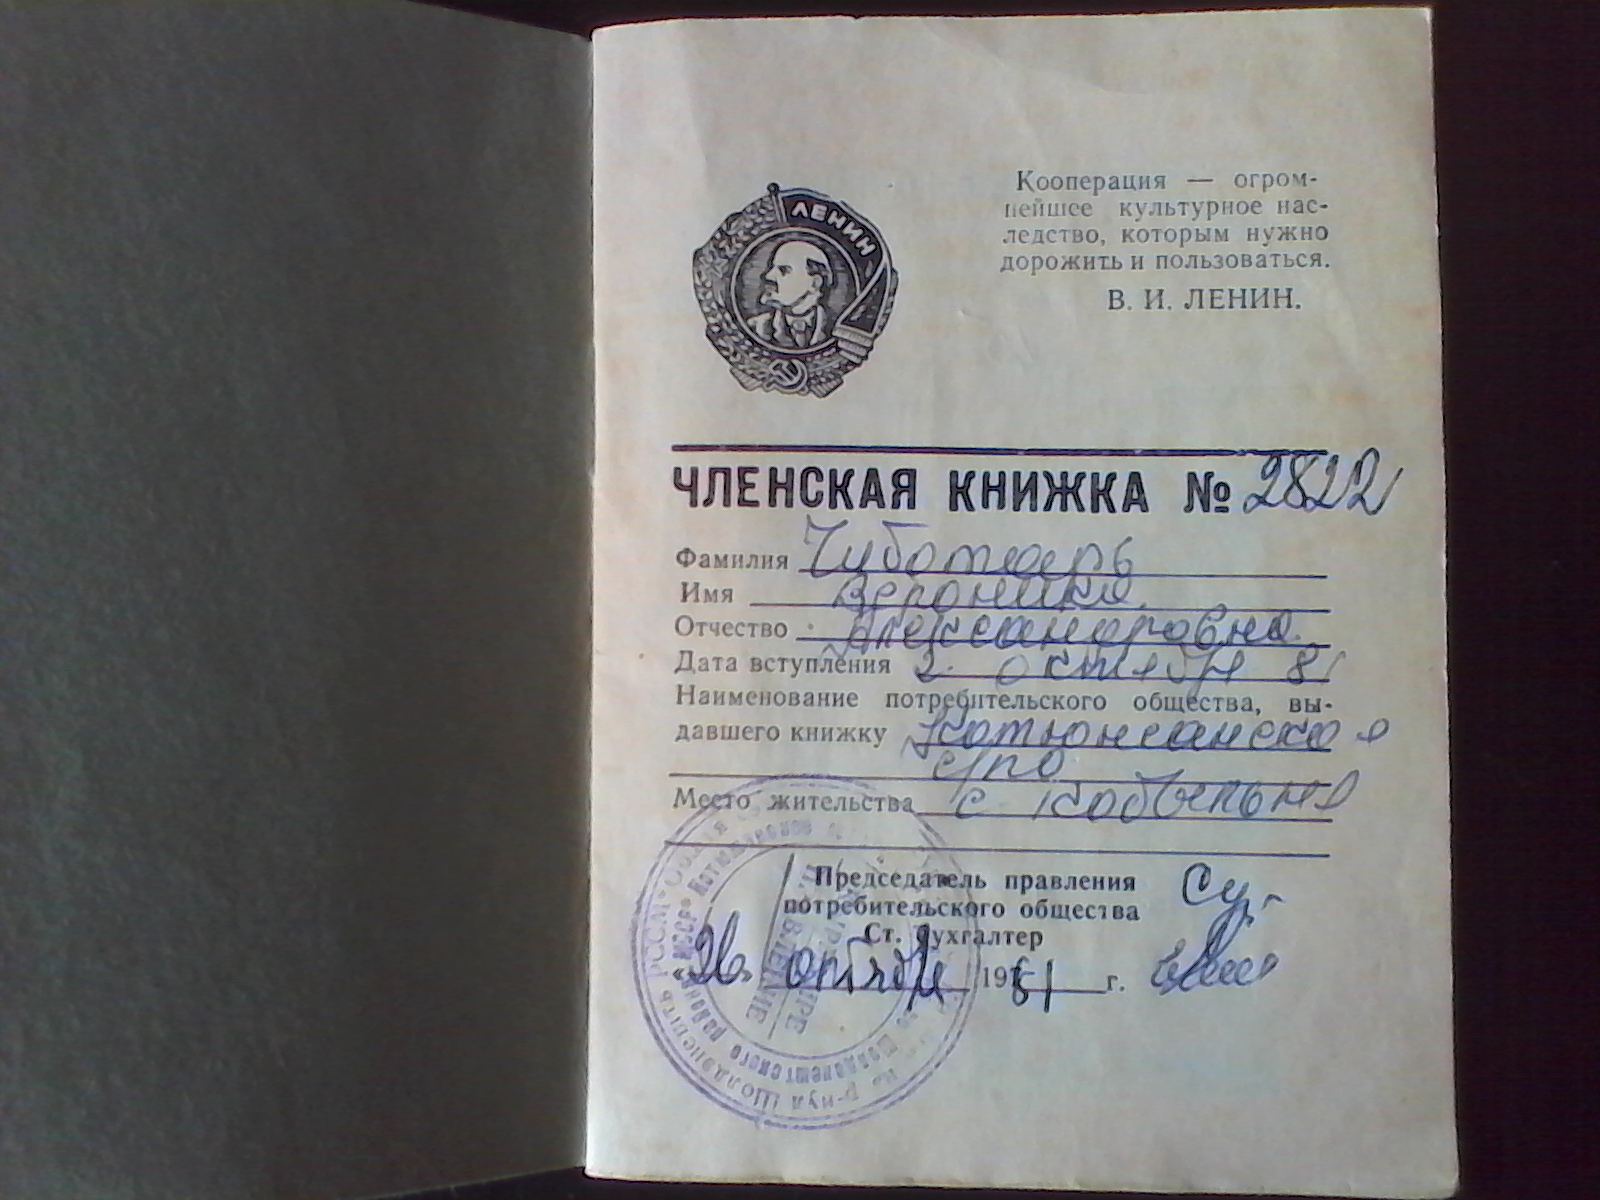 ЛЕНИН
Кооперация — огром-
нейшее культурное нас-
ледство, которым нужно
дорожить и пользоваться.
В. И. ЛЕНИН.
ЧЛЕНСКАЯ КНИЖКА № 2822
Фамилия Чуботарь
Имя Вероника
Отчество Александровна
Дата вступления 2 октября 81
Наименование потребительского общества, вы-
давшего книжку Котюжанское
спо
Место жительства с Кобыльня
Председатель правления
потребительского общества
Ст. бухгалтер
26 октября 1981 г.
РССМ
МССР
Шолданештского района
р-нул Шолдэнешть
ПРАВЛЕНИЕ